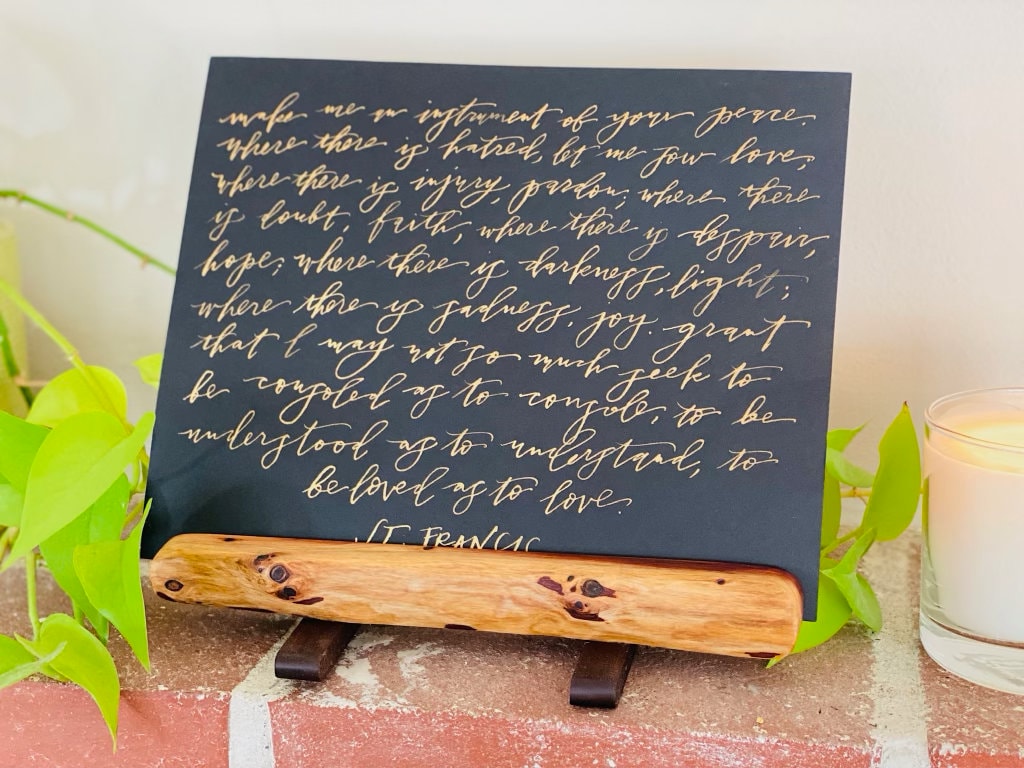 make me an instrument of your peace.
where there is hatred, let me sow love;
where there is injury, pardon; where there
is doubt, faith, where there is despair,
hope; where there is darkness, light;
where there is sadness, joy. grant
that I may not so much seek to
be consoled as to console, to be
understood as to understand, to
be loved as to love.
ST. FRANCIS